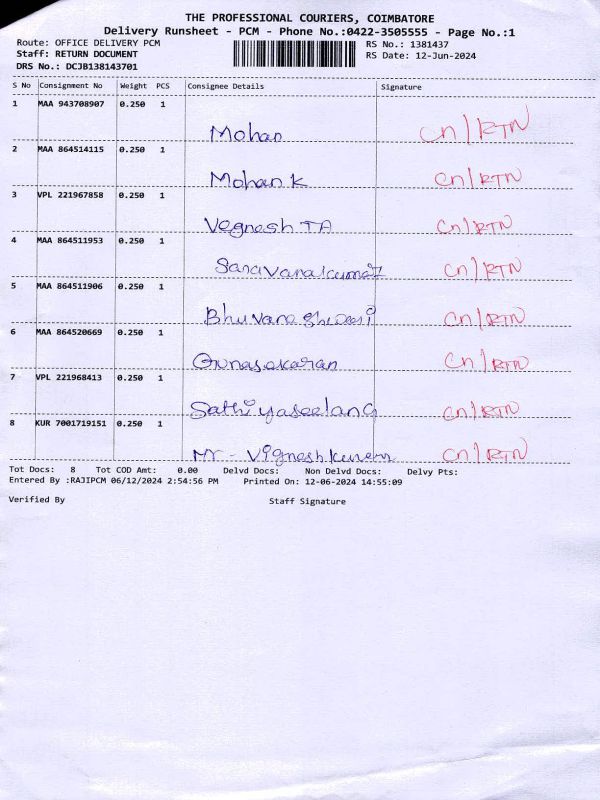 THE PROFESSIONAL COURIERS, COIMBATORE
Delivery Runsheet - PCM - Phone No.:0422-3505555 - Page No.:1
Route: OFFICE DELIVERY PCM RS No.: 1381437
Staff: RETURN DOCUMENT RS Date: 12-Jun-2024
DRS No.: DCJB138143701
S No Consignment No Weight PCS Consignee Details Signature
1 MAA 943708907 0.250 1
Mohan Cn/RTN
2 MAA 864514115 0.250 1
Mohan K Cn/RTN
3 VPL 221967858 0.250 1
Vegnesh TA Cn/RTN
4 MAA 864511953 0.250 1
Saravanakumar Cn/RTN
5 MAA 864511906 0.250 1
Bhuvaneshwari Cn/RTN
6 MAA 864520669 0.250 1
Gunasekaran Cn/RTN
7 VPL 221968413 0.250 1
Sathiyaseelan G Cn/RTN
8 KUR 7001719151 0.250 1
Mr - Vignesh kumar Cn/RTN
Tot Docs: 8 Tot COD Amt: 0.00 Delvd Docs: Non Delvd Docs: Delvy Pts:
Entered By :RAJIPCM 06/12/2024 2:54:56 PM Printed On: 12-06-2024 14:55:09
Verified By Staff Signature